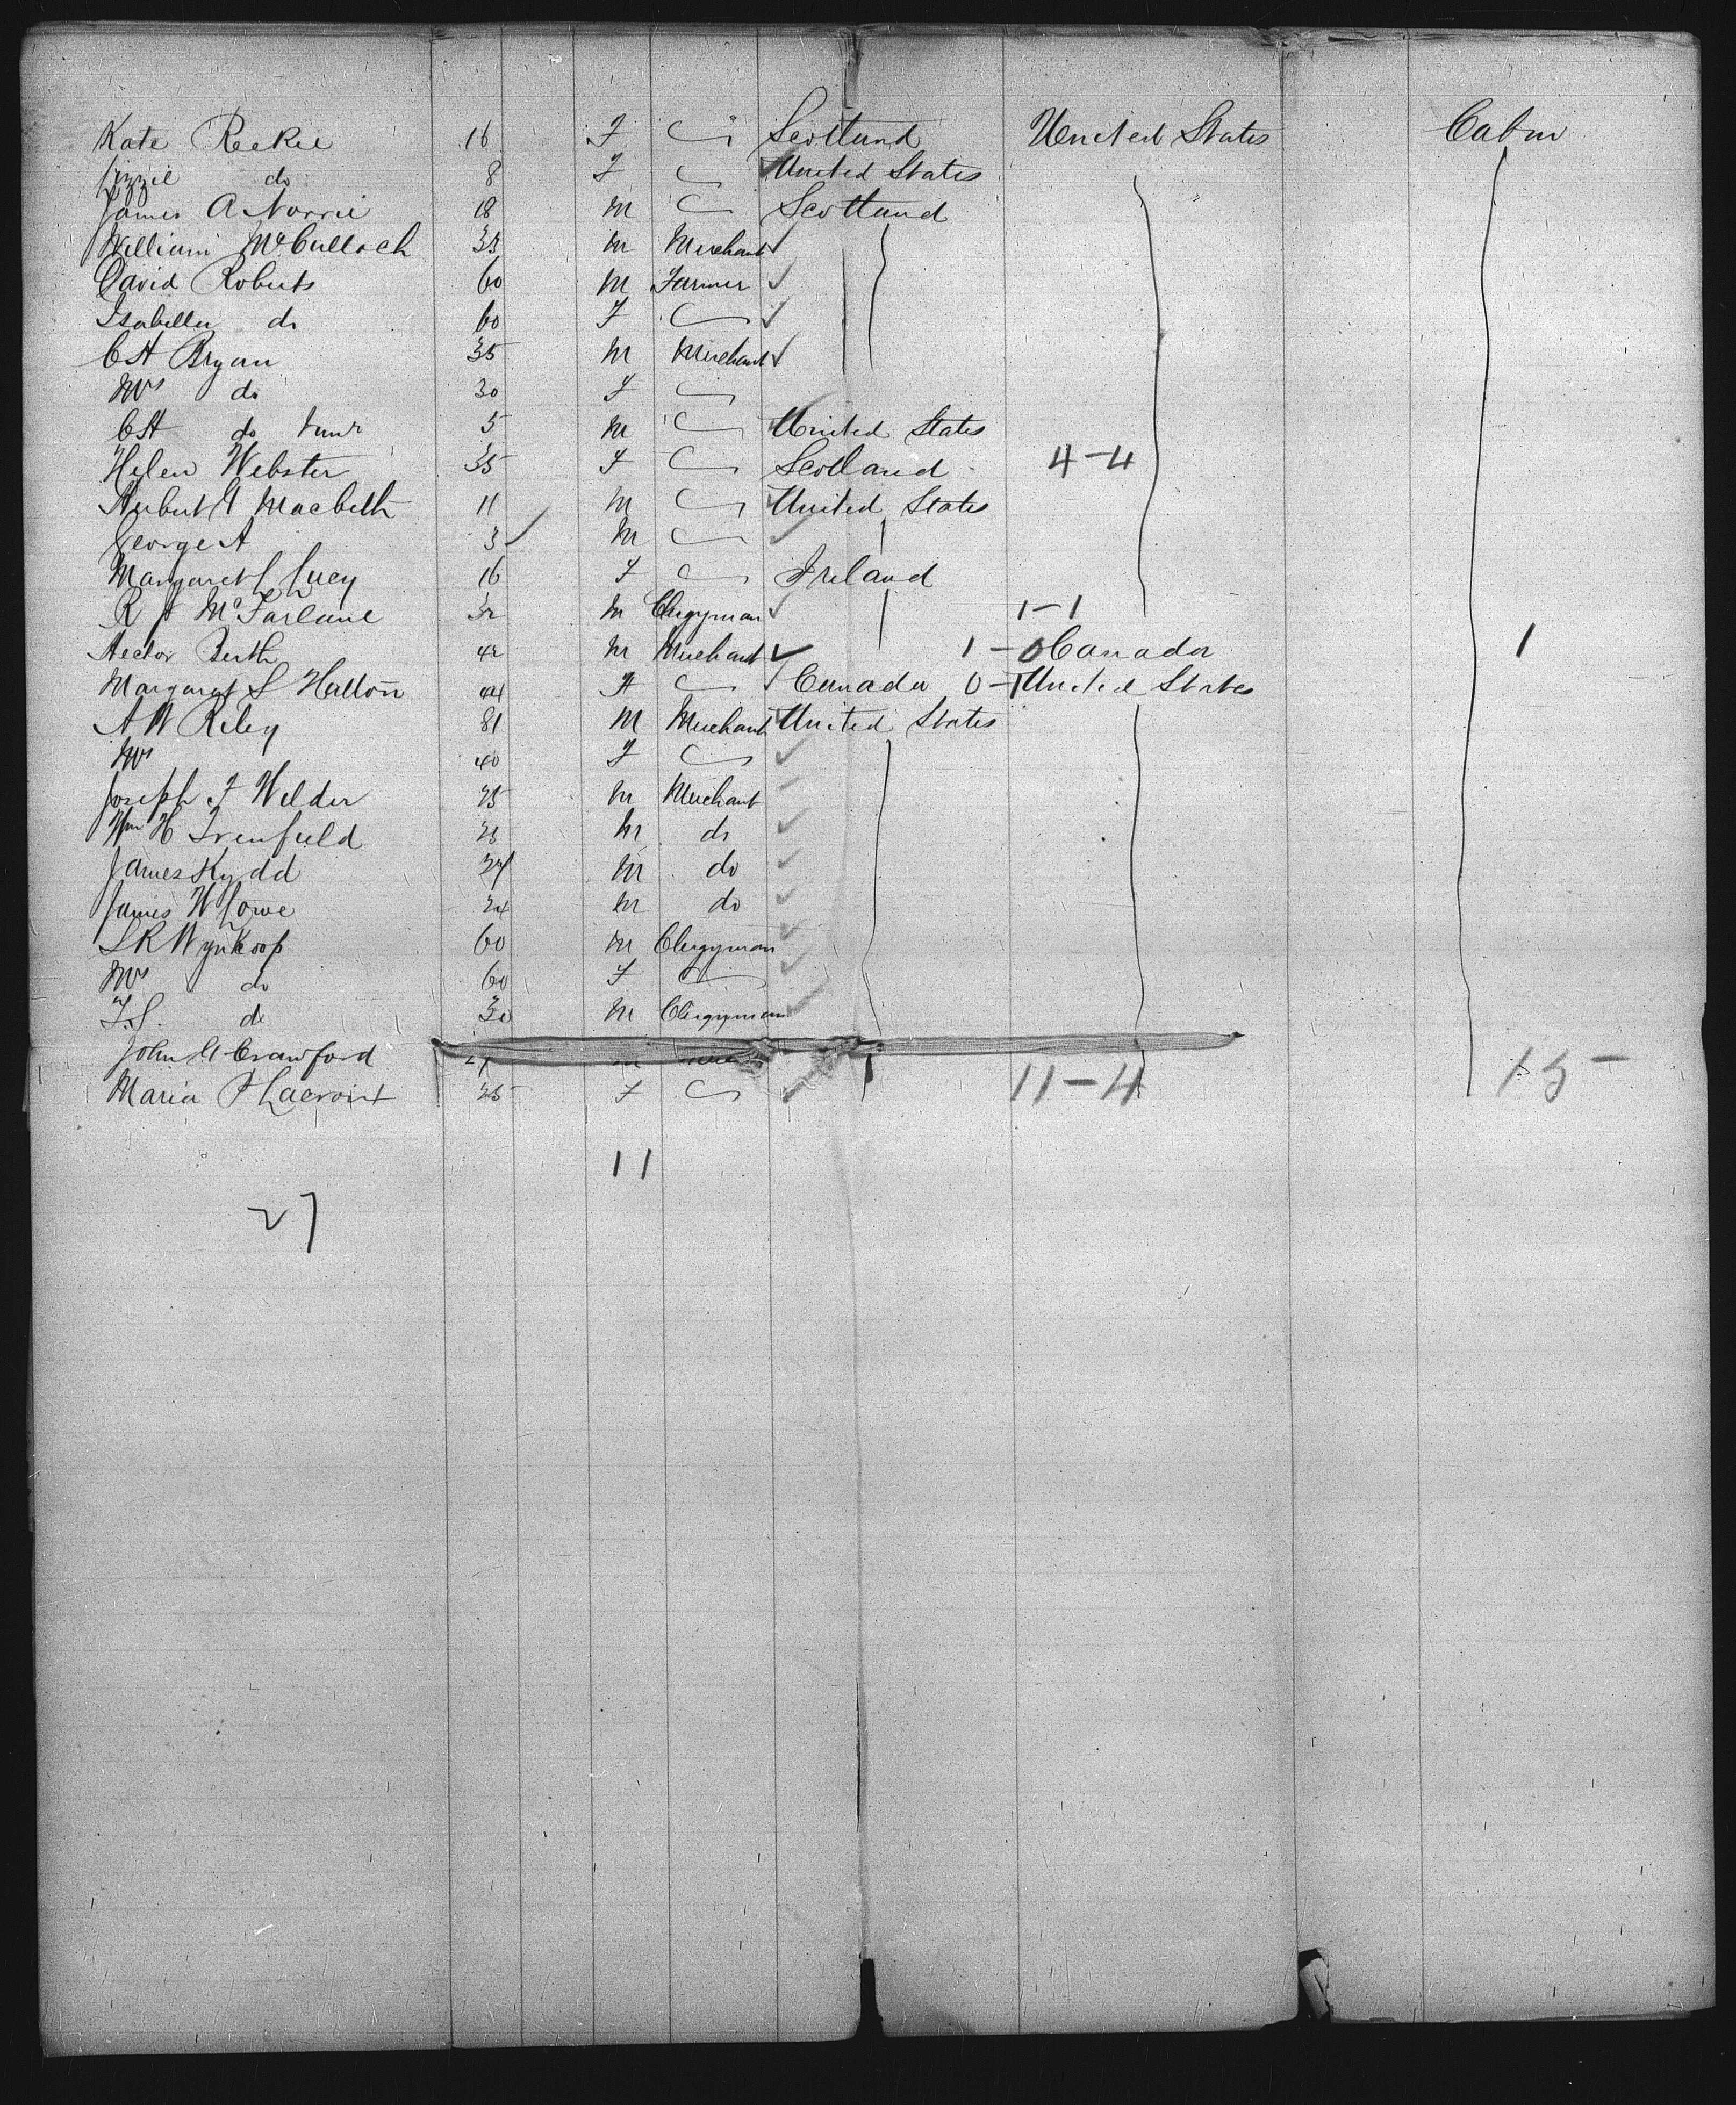 Kate Reekie 16 F Scotland United States Cabin
Lizzie do 8 F United States
James A Norrie 18 M Scotland
William McCulloch M Merchant
David Roberts 60 M Farmer
Isabella do 60 F
C H Bryan 35 M Merchant
Mrs do 30 F
C H do Junr 5 M United States
Helen Webster 35 F Scotland 4-4
Macbeth 11 M United States
George A 3 M
Margaret L Lucy 16 F Ireland
R McFarlane 32 M Clergyman 1-1
Hector 42 M Merchant 1-0 Canada 1
Margaret S Hatton 44 F Canada 0-1 United States
A W Riley 81 M Merchant United States
Mrs 40 F
Joseph F Wilder M Merchant
Wm H M do
James Kydd M do
James W Lowe 24 M do
S R Wynkoop 60 M Clergyman
Mrs do 60 F
T. S. do 30 M Clergyman
John Crawford
Maria F 25 F 11-4 15-
11
27